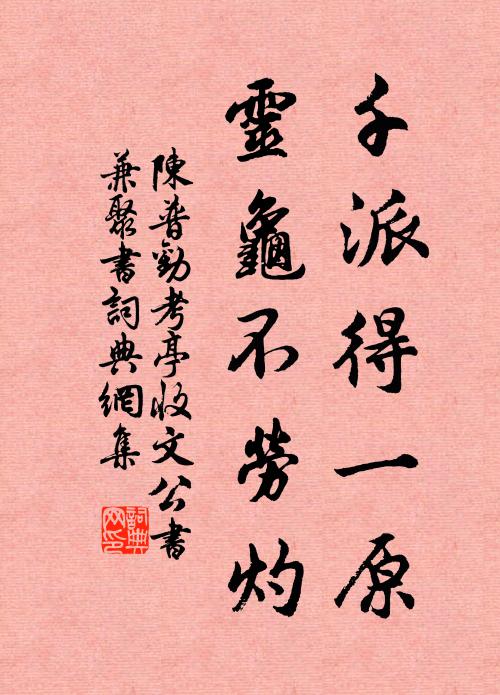 千派得一原
靈龜不勞灼
陳普勸考亭收文公書
兼聚書詞典網集
詞典
网印